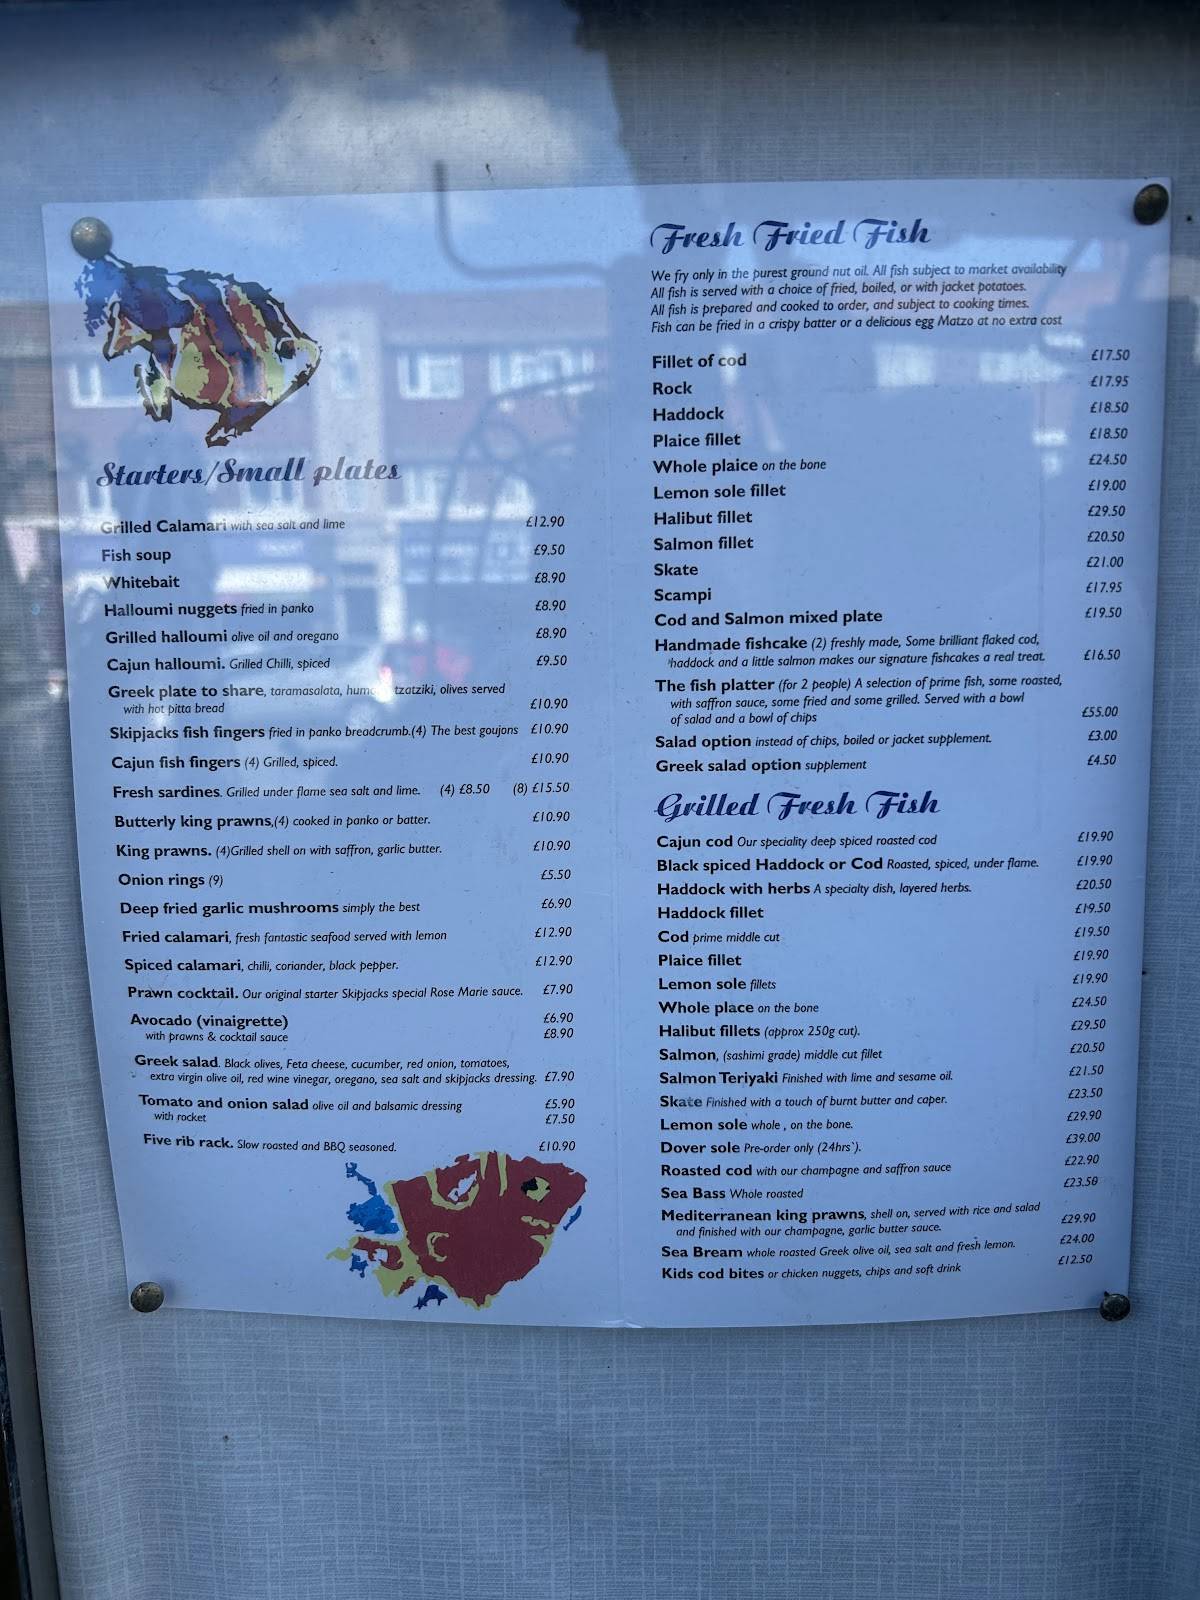 Starters/Small plates
Grilled Calamari with sea salt and lime £12.90
Fish soup £9.50
Whitebait £8.90
Halloumi nuggets fried in panko £8.90
Grilled halloumi olive oil and oregano £8.90
Cajun halloumi. Grilled Chilli, spiced £9.50
Greek plate to share, taramasalata, tzatziki, olives served
with hot pitta bread £10.90
Skipjacks fish fingers fried in panko breadcrumb.(4) The best goujons £10.90
Cajun fish fingers (4) Grilled, spiced. £10.90
Fresh sardines. Grilled under flame sea salt and lime. (4) £8.50 (8) £15.50
Butterly king prawns,(4) cooked in panko or batter. £10.90
King prawns. (4)Grilled shell on with saffron, garlic butter. £10.90
Onion rings (9) £5.50
Deep fried garlic mushrooms simply the best £6.90
Fried calamari, fresh fantastic seafood served with lemon £12.90
Spiced calamari, chilli, coriander, black pepper. £12.90
Prawn cocktail. Our original starter Skipjacks special Rose Marie sauce. £7.90
Avocado (vinaigrette) £6.90
with prawns & cocktail sauce £8.90
Greek salad. Black olives, Feta cheese, cucumber, red onion, tomatoes,
extra virgin olive oil, red wine vinegar, oregano, sea salt and skipjacks dressing. £7.90
Tomato and onion salad olive oil and balsamic dressing £5.90
with rocket £7.50
Five rib rack. Slow roasted and BBQ seasoned. £10.90
Fresh Fried Fish
We fry only in the purest ground nut oil. All fish subject to market availability
All fish is served with a choice of fried, boiled, or with jacket potatoes.
All fish is prepared and cooked to order, and subject to cooking times.
Fish can be fried in a crispy batter or a delicious egg Matzo at no extra cost
Fillet of cod £17.50
Rock £17.95
Haddock £18.50
Plaice fillet £18.50
Whole plaice on the bone £24.50
Lemon sole fillet £19.00
Halibut fillet £29.50
Salmon fillet £20.50
Skate £21.00
Scampi £17.95
Cod and Salmon mixed plate £19.50
Handmade fishcake (2) freshly made, Some brilliant flaked cod,
haddock and a little salmon makes our signature fishcakes a real treat. £16.50
The fish platter (for 2 people) A selection of prime fish, some roasted,
with saffron sauce, some fried and some grilled. Served with a bowl
of salad and a bowl of chips £55.00
Salad option instead of chips, boiled or jacket supplement. £3.00
Greek salad option supplement £4.50
Grilled Fresh Fish
Cajun cod Our speciality deep spiced roasted cod £19.90
Black spiced Haddock or Cod Roasted, spiced, under flame. £19.90
Haddock with herbs A specialty dish, layered herbs. £20.50
Haddock fillet £19.50
Cod prime middle cut £19.50
Plaice fillet £19.90
Lemon sole fillets £19.90
Whole place on the bone £24.50
Halibut fillets (approx 250g cut). £29.50
Salmon, (sashimi grade) middle cut fillet £20.50
Salmon Teriyaki Finished with lime and sesame oil. £21.50
Skate Finished with a touch of burnt butter and caper. £23.50
Lemon sole whole , on the bone. £29.90
Dover sole Pre-order only (24hrs`). £39.00
Roasted cod with our champagne and saffron sauce £22.90
Sea Bass Whole roasted £23.50
Mediterranean king prawns, shell on, served with rice and salad
and finished with our champagne, garlic butter sauce. £29.90
Sea Bream whole roasted Greek olive oil, sea salt and fresh lemon. £24.00
Kids cod bites or chicken nuggets, chips and soft drink £12.50